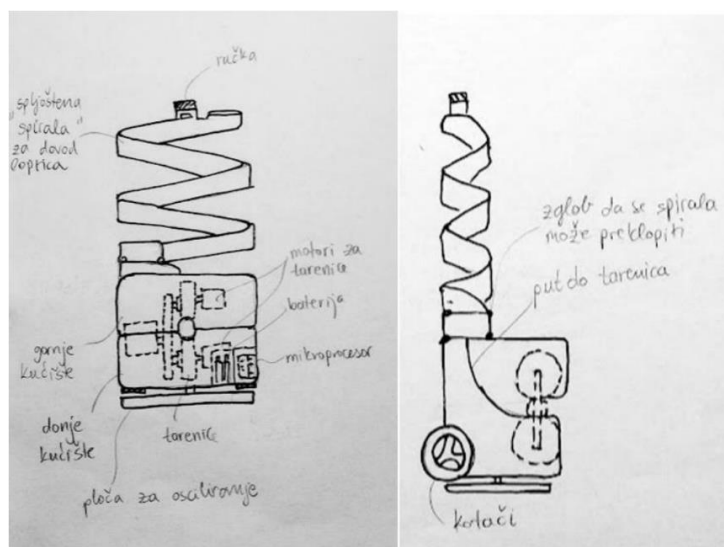 ručka
"spljoštena
spirala"
za dovod
loptica
motori za
tarenice
baterija
mikroprocesor
gornje
kućište
donje
kućište
tarenice
ploča za osciliranje
zglob da se spirala
može preklopiti
put do tarenica
kotači